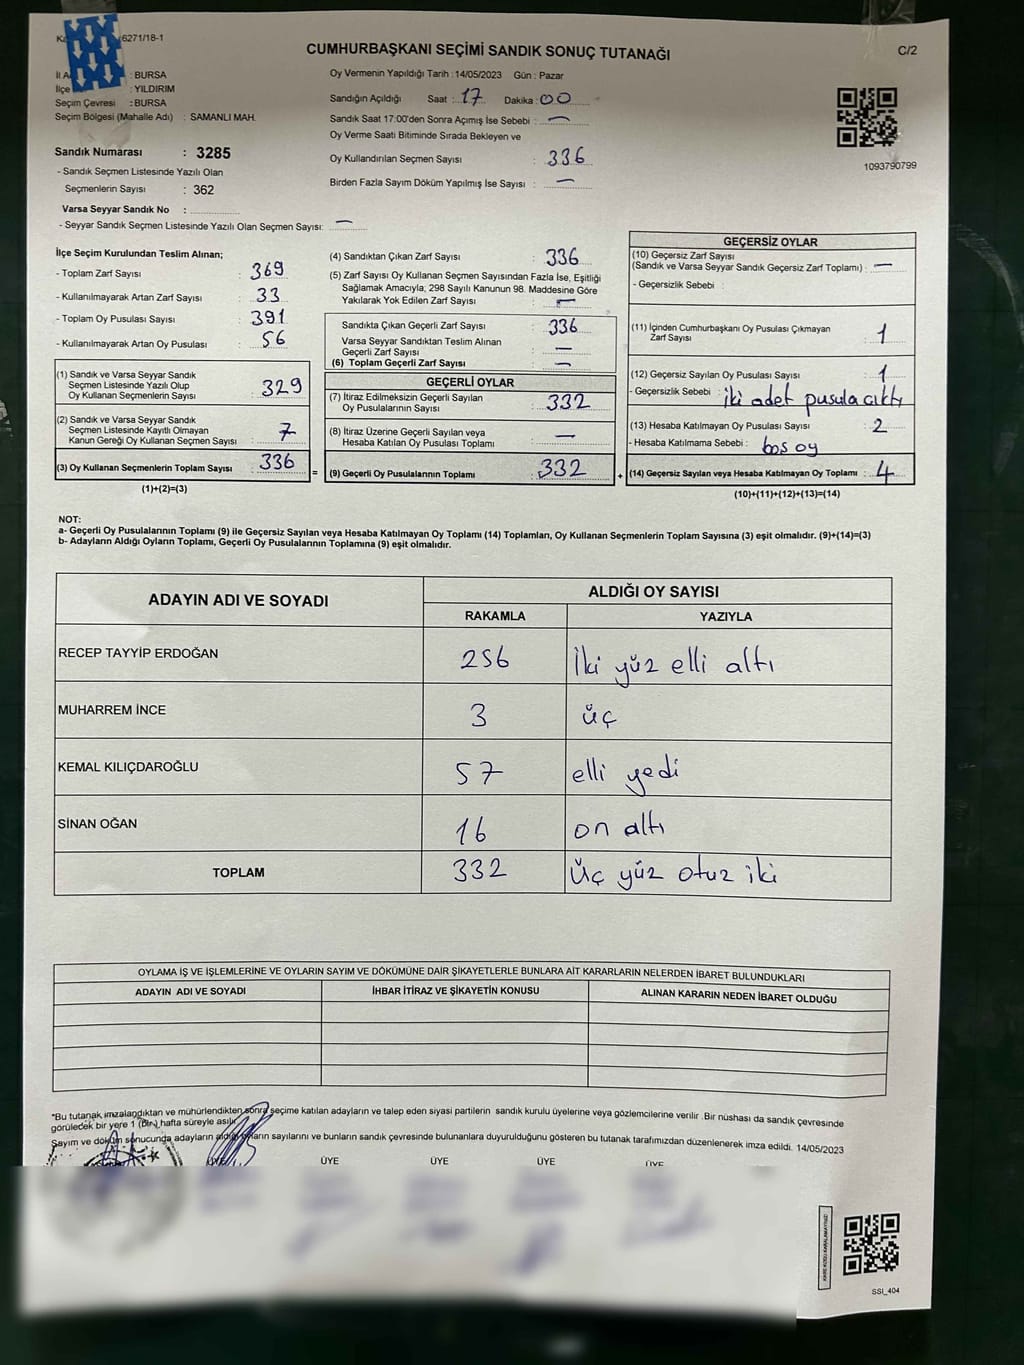 6271/18-1
CUMHURBAŞKANI SEÇİMİ SANDIK SONUÇ TUTANAĞI
C/2
: BURSA
İlçe : YILDIRIM
Seçim Çevresi : BURSA
Seçim Bölgesi (Mahalle Adı) : SAMANLI MAH.
Sandık Numarası : 3285
- Sandık Seçmen Listesinde Yazılı Olan
Seçmenlerin Sayısı : 362
Varsa Seyyar Sandık No :
- Seyyar Sandık Seçmen Listesinde Yazılı Olan Seçmen Sayısı: —
Oy Vermenin Yapıldığı Tarih : 14/05/2023 Gün : Pazar
Sandığın Açıldığı Saat : 17 Dakika : 00
Sandık Saat 17:00'den Sonra Açımış İse Sebebi : —
Oy Verme Saati Bitiminde Sırada Bekleyen ve
Oy Kullandırılan Seçmen Sayısı : 336
Birden Fazla Sayım Döküm Yapılmış İse Sayısı : —
1093790799
İlçe Seçim Kurulundan Teslim Alınan;
- Toplam Zarf Sayısı : 369
- Kullanılmayarak Artan Zarf Sayısı : 33
- Toplam Oy Pusulası Sayısı : 391
- Kullanılmayarak Artan Oy Pusulası : 56
(1) Sandık ve Varsa Seyyar Sandık
Seçmen Listesinde Yazılı Olup
Oy Kullanan Seçmenlerin Sayısı : 329
(2) Sandık ve Varsa Seyyar Sandık
Seçmen Listesinde Kayıtlı Olmayan
Kanun Gereği Oy Kullanan Seçmen Sayısı : 7
(3) Oy Kullanan Seçmenlerin Toplam Sayısı : 336
(1)+(2)=(3)
(4) Sandıktan Çıkan Zarf Sayısı : 336
(5) Zarf Sayısı Oy Kullanan Seçmen Sayısından Fazla İse, Eşitliği
Sağlamak Amacıyla, 298 Sayılı Kanunun 98. Maddesine Göre
Yakılarak Yok Edilen Zarf Sayısı : —
Sandıkta Çıkan Geçerli Zarf Sayısı : 336
Varsa Seyyar Sandıktan Teslim Alınan
Geçerli Zarf Sayısı : —
(6) Toplam Geçerli Zarf Sayısı : —
GEÇERLİ OYLAR
(7) İtiraz Edilmeksizin Geçerli Sayılan
Oy Pusulalarının Sayısı : 332
(8) İtiraz Üzerine Geçerli Sayılan veya
Hesaba Katılan Oy Pusulası Toplamı : —
= (9) Geçerli Oy Pusulalarının Toplamı : 332
GEÇERSİZ OYLAR
(10) Geçersiz Zarf Sayısı
(Sandık ve Varsa Seyyar Sandık Geçersiz Zarf Toplamı) : —
- Geçersizlik Sebebi :
(11) İçinden Cumhurbaşkanı Oy Pusulası Çıkmayan
Zarf Sayısı : 1
(12) Geçersiz Sayılan Oy Pusulası Sayısı : 1
- Geçersizlik Sebebi : iki adet pusula çıktı
(13) Hesaba Katılmayan Oy Pusulası Sayısı : 2
- Hesaba Katılmama Sebebi : boş oy
+ (14) Geçersiz Sayılan veya Hesaba Katılmayan Oy Toplamı : 4
(10)+(11)+(12)+(13)=(14)
NOT:
a- Geçerli Oy Pusulalarının Toplamı (9) ile Geçersiz Sayılan veya Hesaba Katılmayan Oy Toplamı (14) Toplamları, Oy Kullanan Seçmenlerin Toplam Sayısına (3) eşit olmalıdır. (9)+(14)=(3)
b- Adayların Aldığı Oyların Toplamı, Geçerli Oy Pusulalarının Toplamına (9) eşit olmalıdır.
ADAYIN ADI VE SOYADI ALDIĞI OY SAYISI
RAKAMLA YAZIYLA
RECEP TAYYİP ERDOĞAN 256 İki yüz elli altı
MUHARREM İNCE 3 üç
KEMAL KILIÇDAROĞLU 57 elli yedi
SİNAN OĞAN 16 on altı
TOPLAM 332 Üç yüz otuz iki
OYLAMA İŞ VE İŞLEMLERİNE VE OYLARIN SAYIM VE DÖKÜMÜNE DAİR ŞİKAYETLERLE BUNLARA AİT KARARLARIN NELERDEN İBARET BULUNDUKLARI
ADAYIN ADI VE SOYADI İHBAR İTİRAZ VE ŞİKAYETİN KONUSU ALINAN KARARIN NEDEN İBARET OLDUĞU
*Bu tutanak imzalandıktan ve mühürlendikten sonra seçime katılan adayların ve talep eden siyasi partilerin sandık kurulu üyelerine veya gözlemcilerine verilir. Bir nüshası da sandık çevresinde
görülecek bir yere 1 (Bir) hafta süreyle asılır.
Sayım ve döküm sonucunda adayların aldığı oyların sayılarını ve bunların sandık çevresinde bulunanlara duyurulduğunu gösteren bu tutanak tarafımızdan düzenlenerek imza edildi. 14/05/2023
ÜYE ÜYE ÜYE ÜYE ÜYE
SSI_404